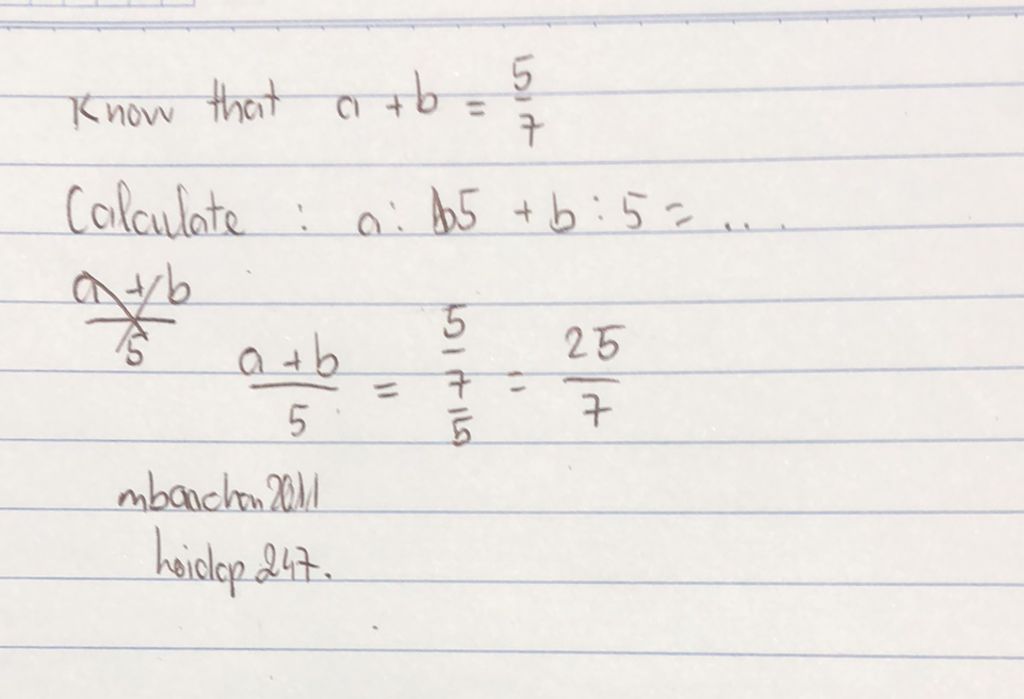 Know that a + b = 5/7
Calculate : a : 5 + b : 5 = ....
a + b / 5
(a + b)/5 = (5/7)/5 = 25/7
mbaachan2011
hoidap 247.